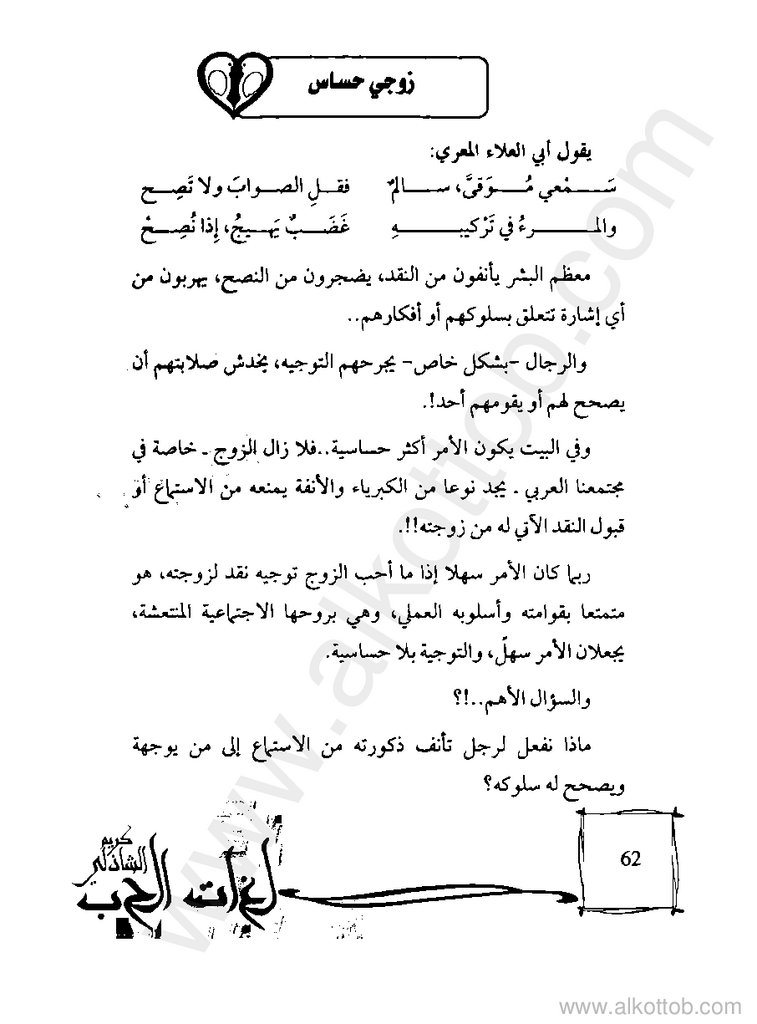 زوجي حساس
يقول أبي العلاء المعري:
سَـــمْعي مُــوَقىً، ســـالمٌ فقــلِ الصـوابَ ولا تَصِـــح
والمـــــرءُ في تَرْكيبـــــهِ غَضَــبٌ يَهــيجُ، إِذا نُصِــحْ
معظم البشر يأنفون من النقد، يضجرون من النصح، يهربون من
أي إشارة تتعلق بسلوكهم أو أفكارهم..
والرجال -بشكل خاص- يجرحهم التوجيه، يخدش صلابتهم أن
يصحح لهم أو يقومهم أحد!.
وفي البيت يكون الأمر أكثر حساسية..فلا زال الزوج ـ خاصة في
مجتمعنا العربي ـ يجد نوعا من الكبرياء والأنفة يمنعه من الاستماع أو
قبول النقد الآتي له من زوجته!!.
ربما كان الأمر سهلا إذا ما أحب الزوج توجيه نقد لزوجته، هو
متمتعا بقوامته وأسلوبه العملي، وهي بروحها الاجتماعية المنتعشة،
يجعلان الأمر سهلً، والتوجية بلا حساسية.
والسؤال الأهم..!؟
ماذا نفعل لرجل تأنف ذكورته من الاستماع إلى من يوجهة
ويصحح له سلوكه؟
62
كريم
الشاذلي
لغات الحب
www.alkottob.com
www.alkottob.com